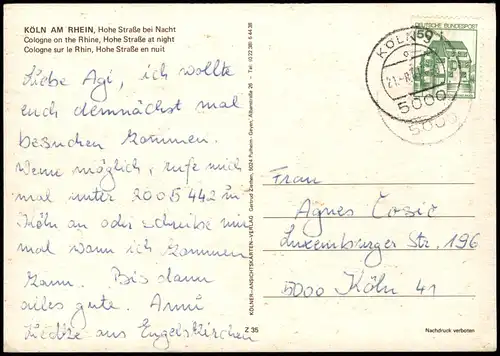 KÖLN AM RHEIN, Hohe Straße bei Nacht
Cologne on the Rhine, Hohe Straße at night
Cologne sur le Rhin, Hohe Straße en nuit
Liebe Agi, ich wollte
euch demnächst mal
besuchen kommen.
Wenn möglich, rufe mich
mal unter 2005442 in
Köln an oder schreibe mir
mal wann ich kommen
kann. Bis dann
alles gute.
aus Engelskirchen
KÖLNER-ANSICHTSKARTEN-VERLAG
Z 35
DEUTSCHE BUNDESPOST
KÖLN
5000
5000
Frau
Agnes
Luxemburger Str. 196
5000 Köln 41
Nachdruck verboten